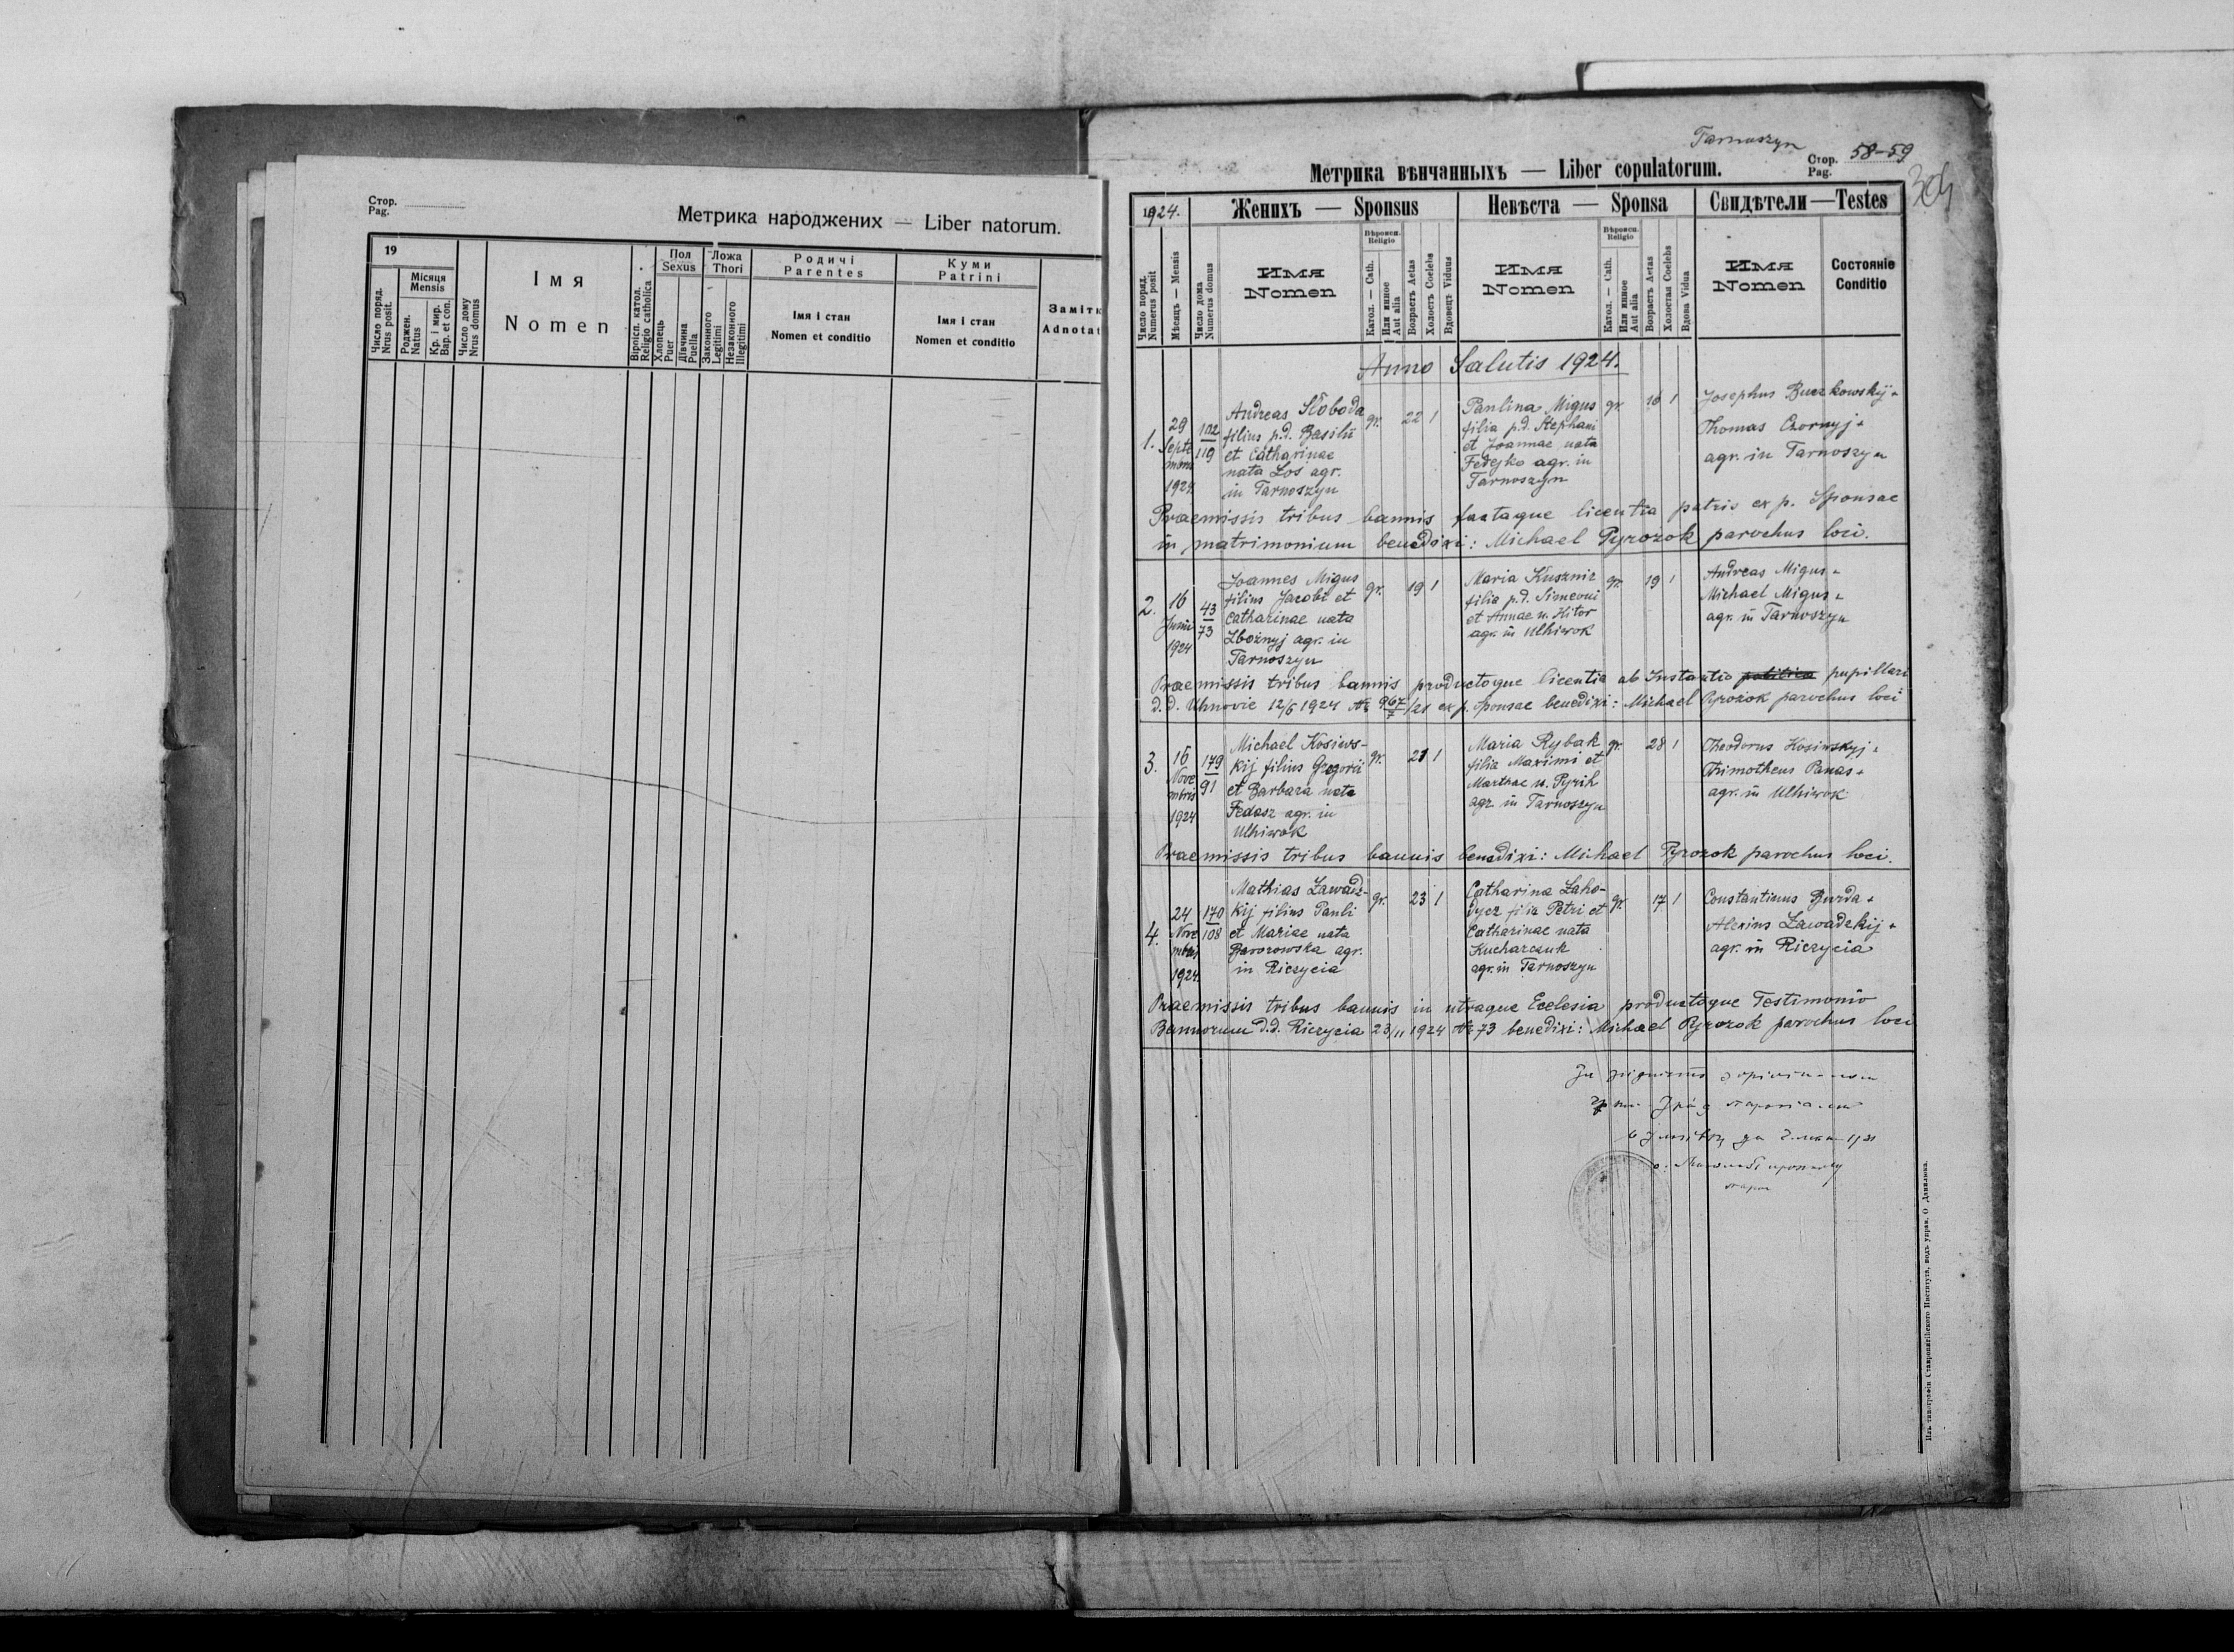 Стор.
Pag.
Метрика народжених — Liber natorum.
19
Число поряд.
Nrus posit.
Місяця
Mensis
Роджен.
Natus
Кр. і мир.
Bap. et con.
Число дому
Nrus domus
Імя
Nomen
Віроісп. катол.
Religio catholica
Пол
Sexus
Хлопець
Puer
Дівчина
Puella
Ложа
Thori
Законного
Legitimi
Незаконного
Illegitimi
Родичі
Parentes
Імя і стан
Nomen et conditio
Куми
Patrini
Імя і стан
Nomen et conditio
Замітк
Adnotat
Tarnoszyn
Метрика вѣнчанныхъ — Liber copulatorum.
Стор.
Pag.
58-59
304
1924.
Женихъ — Sponsus
Невѣста — Sponsa
Свидѣтели — Testes
Число поряд.
Numerus posit
Мѣсяцъ — Mensis
Число дома
Numerus domus
Имя
Nomen
Вѣроисп.
Religio
Катол. — Cath.
Или инное
Aut alia
Возрастъ Aetas
Холостъ Coelebs
Вдовецъ Viduus
Имя
Nomen
Вѣроисп.
Religio
Катол. — Cath.
Или инное
Aut alia
Возрастъ Aetas
Холостая Coelebs
Вдова Vidua
Имя
Nomen
Состояніе
Conditio
Anno Salutis 1924.
1.
29
Septe
mbris
1924
102
119
Andreas Słoboda
filius p.d. Basilii
et Catharinae
nata Łos agr.
in Tarnoszyn
gr. 22 1
Paulina Migus
filia p.d. Stephani
et Joannae nata
Fedejko agr. in
Tarnoszyn
gr. 16 1
Josephus Buczkowskij +
Thomas Czornyj +
agr. in Tarnoszyn
Praemissis tribus bannis factaque licentia patris ex p. Sponsae
in matrimonium benedixi: Michael Pyrożok parochus loci.
2.
16
Junii
1924
43
73
Joannes Migus
filius Jacobi et
Catharinae nata
Zbożnyj agr. in
Tarnoszyn
gr. 19 1
Maria Kusznir
filia p.d. Simeoni
et Annae n. Hitor
agr. in Ulhiwok
gr. 19 1
Andreas Migus +
Michael Migus +
agr. in Tarnoszyn
Praemissis tribus bannis productoque licentia ab Instantio pupillari
d.d. Uhnovie 12/6 1924 № 967/7/21 ex p. Sponsae benedixi: Michael Pyrożok parochus loci
3.
16
Nove
mbris
1924
179
91
Michael Kosiws-
kij filius Gregorii
et Barbara nata
Fedasz agr. in
Ulhiwok
gr. 21 1
Maria Rybak
filia Maximi et
Marthae n. Pyrih
agr in Tarnoszyn
gr. 28 1
Theodorus Kosiwskyj +
Thimotheus Panas +
agr. in Ulhiwok
Praemissis tribus bannis benedixi: Michael Pyrożok parochus loci.
4.
24
Nove
mbris
1924
170
108
Mathias Zawadz-
kij filius Pauli
et Mariae nata
Baworowska agr.
in Riczycia
gr. 23 1
Catharina Zaho-
dycz filia Petri et
Catharinae nata
Kucharczuk
agr. in Tarnoszyn
gr. 17 1
Constantinus Burda +
Alexius Zawadzkij +
agr. in Riczycia
Praemissis tribus bannis in utraque Ecclesia productoque Testimonio
Bannorum d.d. Riczycia 23/11 1924 № 73 benedixi: Michael Pyrożok parochus loci
Изъ типографіи Ставропигійского Института, подъ управ. О. Данилюка.